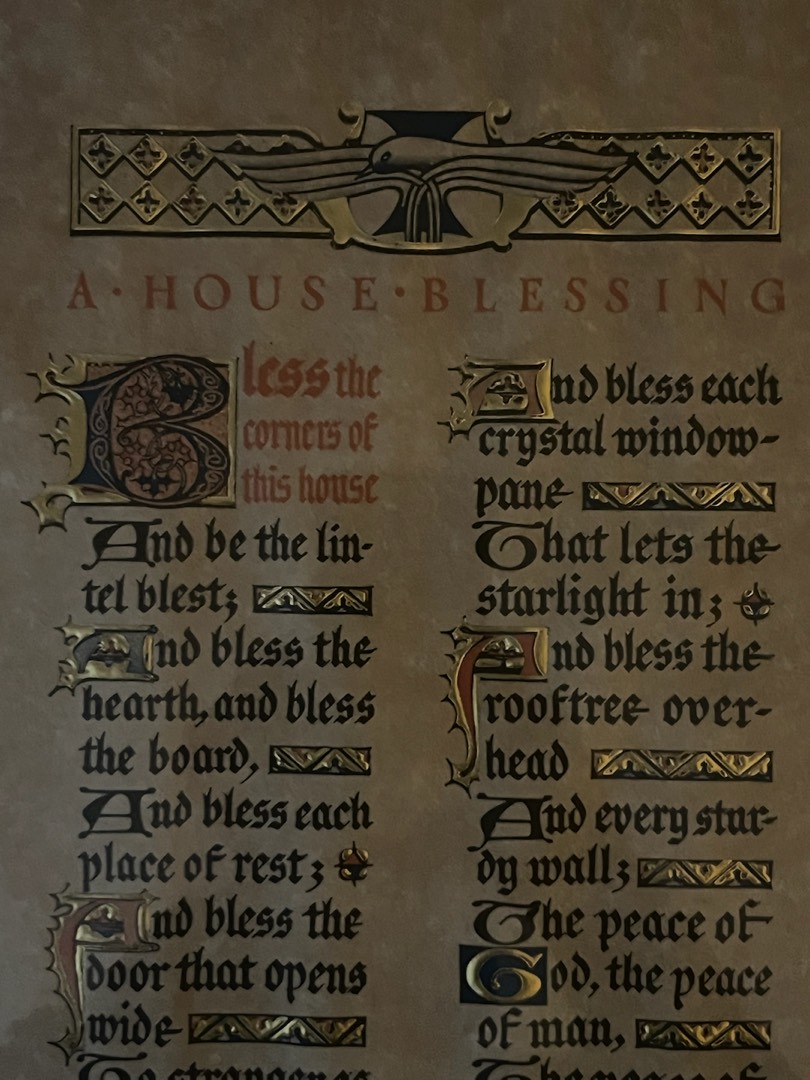 A·HOUSE·BLESSING
Bless the
corners of
this house
And be the lin-
tel blest;
And bless the
hearth, and bless
the board,
And bless each
place of rest;
And bless the
door that opens
wide
And bless each
crystal window-
pane
That lets the
starlight in;
And bless the
rooftree over-
head
And every stur-
dy wall;
The peace of
God, the peace
of man,